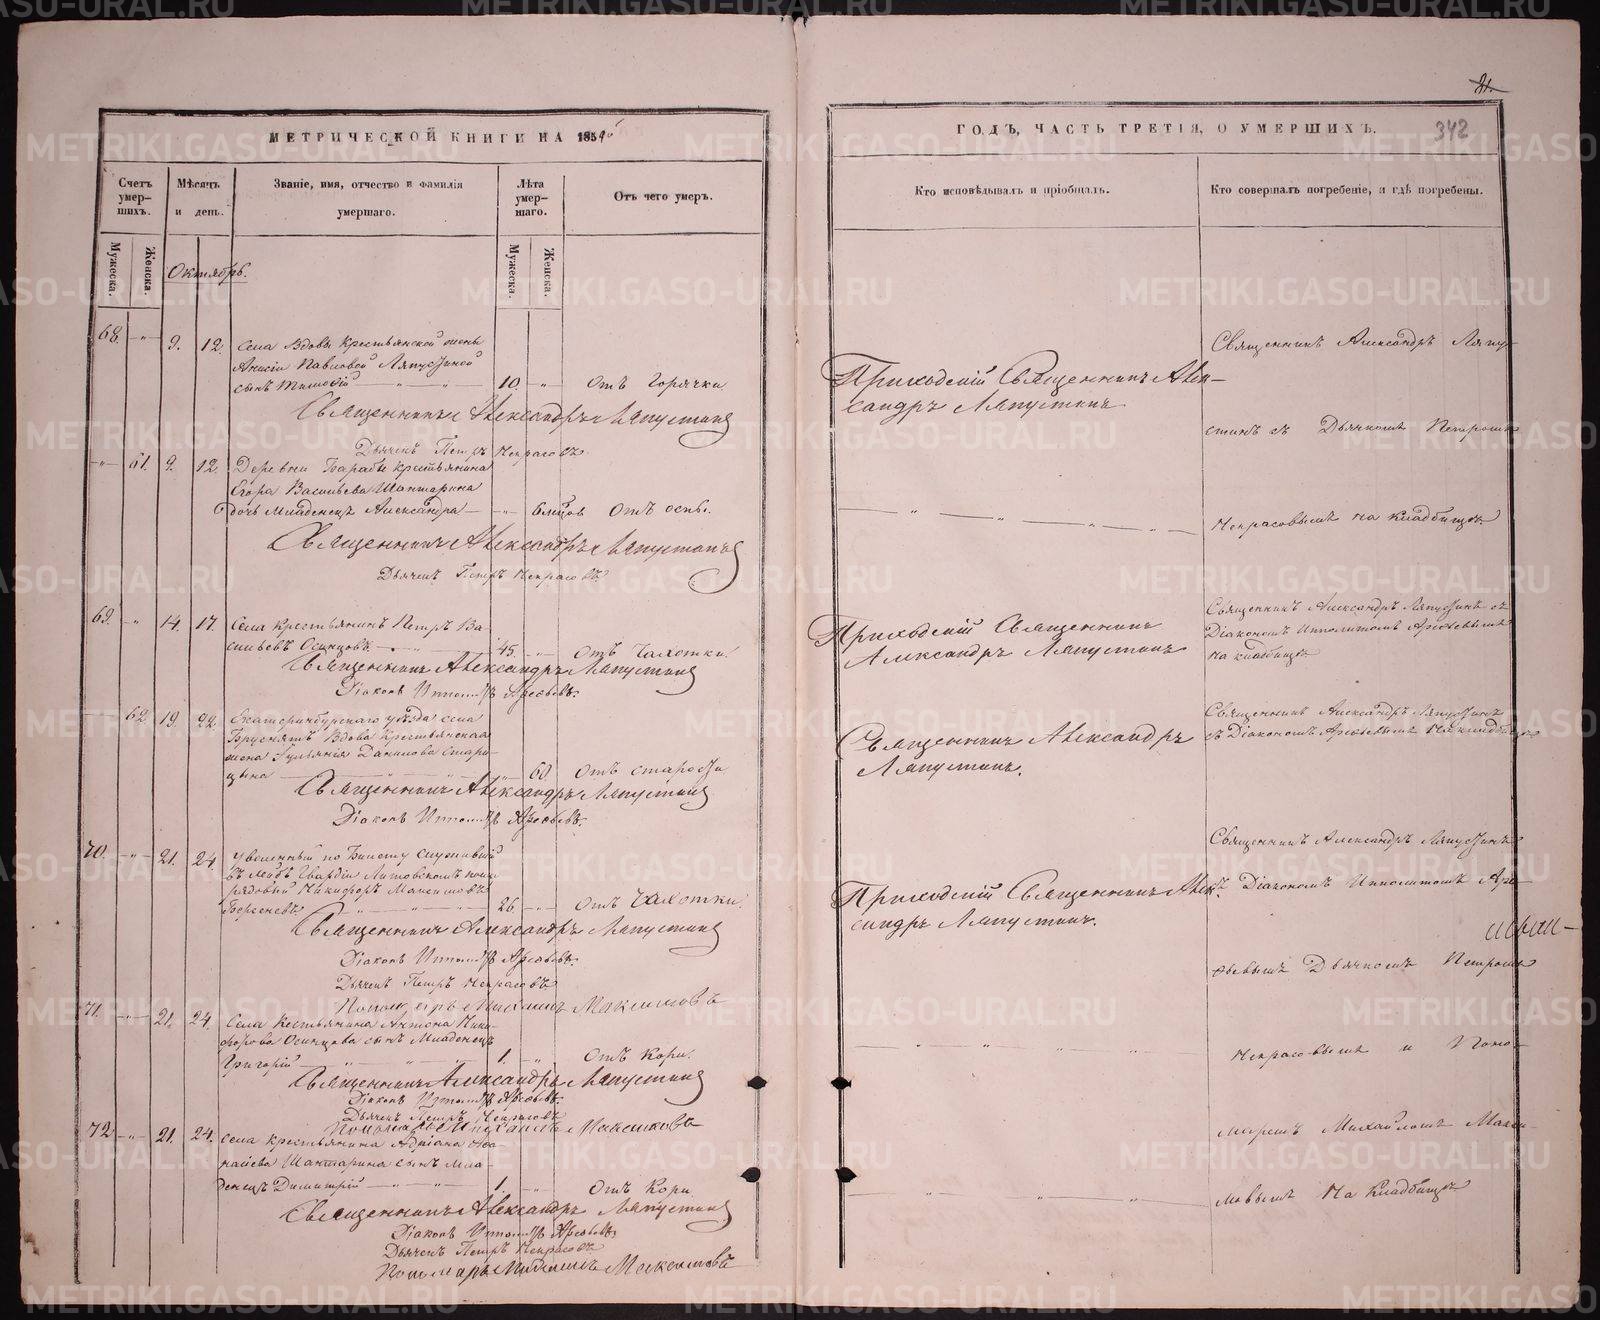 МЕТРИЧЕСКОЙ КНИГИ НА 1859й
Счетъ умер-шихъ.
Мѣсяцъ и день.
Званіе, имя, отчество и фамилія умершаго.
Лѣта умер-шаго.
Отъ чего умеръ.
Мужеска.
Женска.
Мужеска.
Женска.
Октябрь.
68. 9. 12. Села Вдовы Крестьянской жены
Анисіи Павловой Ляпустиной
сынъ Тимоѳій 10 Отъ Горячки
Священникъ Александръ Ляпустинъ
Дьячекъ Петръ Некрасовъ.
61. 9. 12. Деревни Барабы крестьянина
Егора Васильева Шантарина
дочь младенецъ Александра 6 мѣсѣцов Отъ оспы.
Священникъ Александръ Ляпустинъ
Дьячекъ Петръ Некрасовъ
69. 14. 17. Села Крестьянинъ Петръ Ва-
сильевъ Осинцовъ 45. Отъ Чахотки
Священникъ Александръ Ляпустинъ
Діаконъ Ипполитъ Арефьевъ.
62. 19. 22. Екатеринбурскаго уѣзда села
Бруснятъ Вдова Крестьянская
жена Гульянія Данилова Стари-
цына 60 Отъ старости
Священникъ Александръ Ляпустинъ
Діаконъ Ипполитъ Арефьевъ.
70. 21. 24 Уволенный по билету служивый
въ Лейбъ Гвардіи Литовскомъ полку
рядовый Никифоръ Максимовъ
26. Отъ Чахотки.
Священникъ Александръ Ляпустинъ
Діаконъ Ипполитъ Арефьевъ.
Дьячекъ Петръ Некрасовъ
Пономарь Михаилъ Максимовъ
71. 21. 24. Села Кестьянина Антона Ники-
форова Осинцова сынъ Младенецъ
Григорій 1. Отъ Кори.
Священникъ Александръ Ляпустинъ
Діаконъ Ипполитъ Арефьевъ.
Дьячекъ Петръ Некрасовъ
Пономарь Михаилъ Максимовъ
72 21. 24. Села Крестьянина Адріана
Шантарина сынъ мла-
денецъ Димитрій 1. Отъ Кори
Священникъ Александръ Ляпустинъ
Діаконъ Ипполитъ Арефьевъ.
Дьячекъ Петръ Некрасовъ
Пономарь Михаилъ Максимовъ
ГОДЪ, ЧАСТЬ ТРЕТІЯ, О УМЕРШИХЪ.
342
Кто исповѣдывалъ и пріобщалъ.
Кто совершалъ погребеніе, и гдѣ погребены.
Приходскій Священникъ Алек-
сандръ Ляпустинъ
Священникъ Александръ Ляпу-
стинъ съ Дьячкомъ Петромъ
Некрасовымъ на кладбищѣ
Приходскій Священникъ
Александръ Ляпустинъ
Священникъ Александръ Ляпустинъ съ
Діакономъ Ипполитомъ Арефьевымъ
на кладбищѣ
Священникъ Александръ
Ляпустинъ.
Священникъ Александръ Ляпустинъ
съ Діакономъ Арефьевымъ На кладбищѣ
Приходскій Священникъ Алек-
сандръ Ляпустинъ.
Священникъ Александръ Ляпустинъ
съ Діакономъ Ипполитомъ Аре-
фьевымъ Дьячкомъ Петромъ
Некрасовымъ и Поно-
маремъ Михайломъ Макси-
мовымъ На Кладбищѣ
METRIKI.GASO-URAL.RU